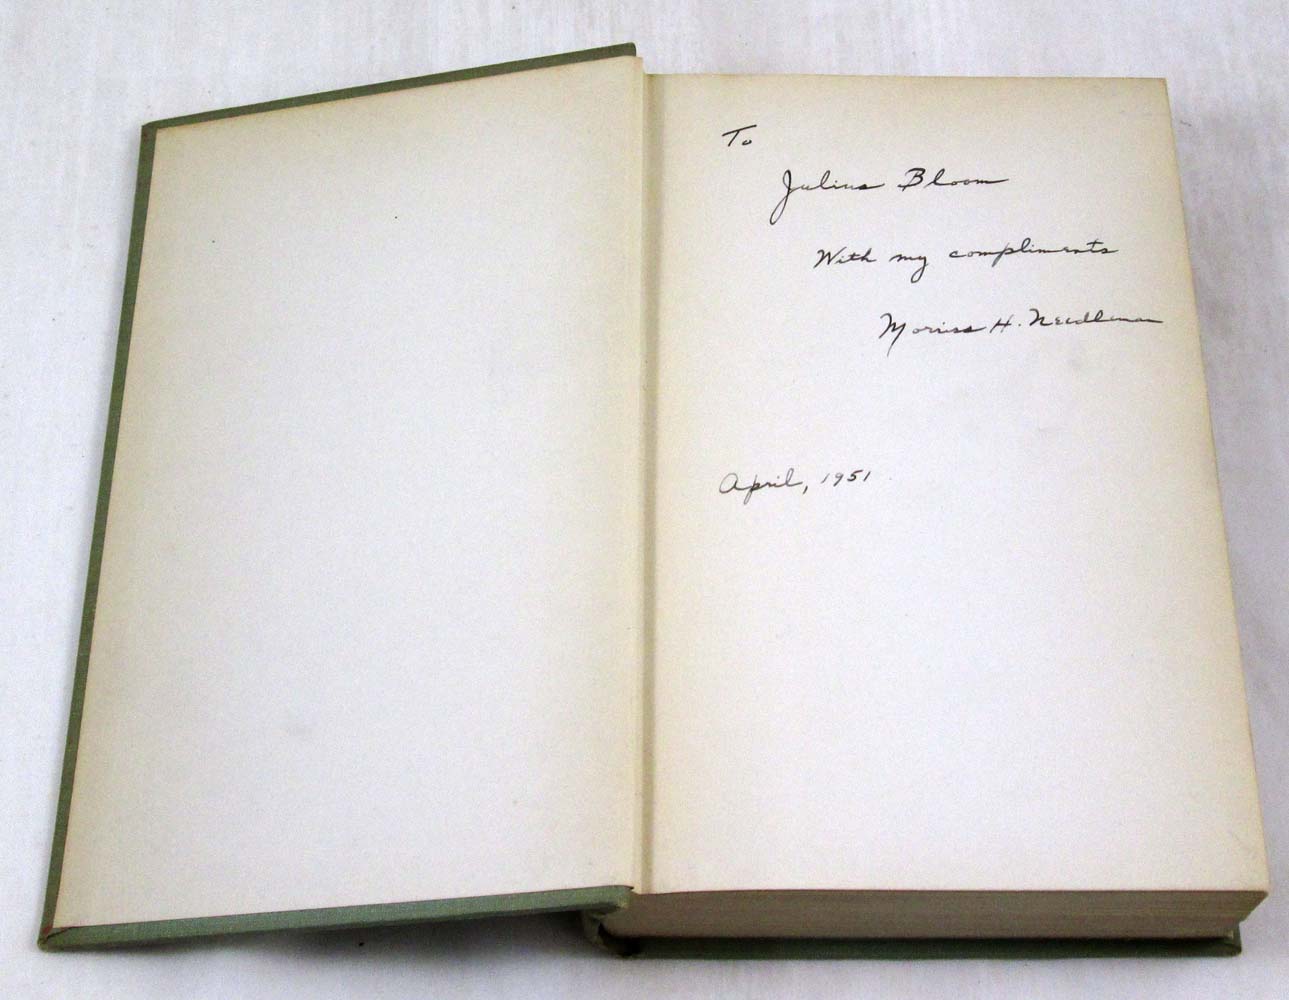 To
Julius Bloom
With my compliments
Morriss H. Needleman
April, 1951